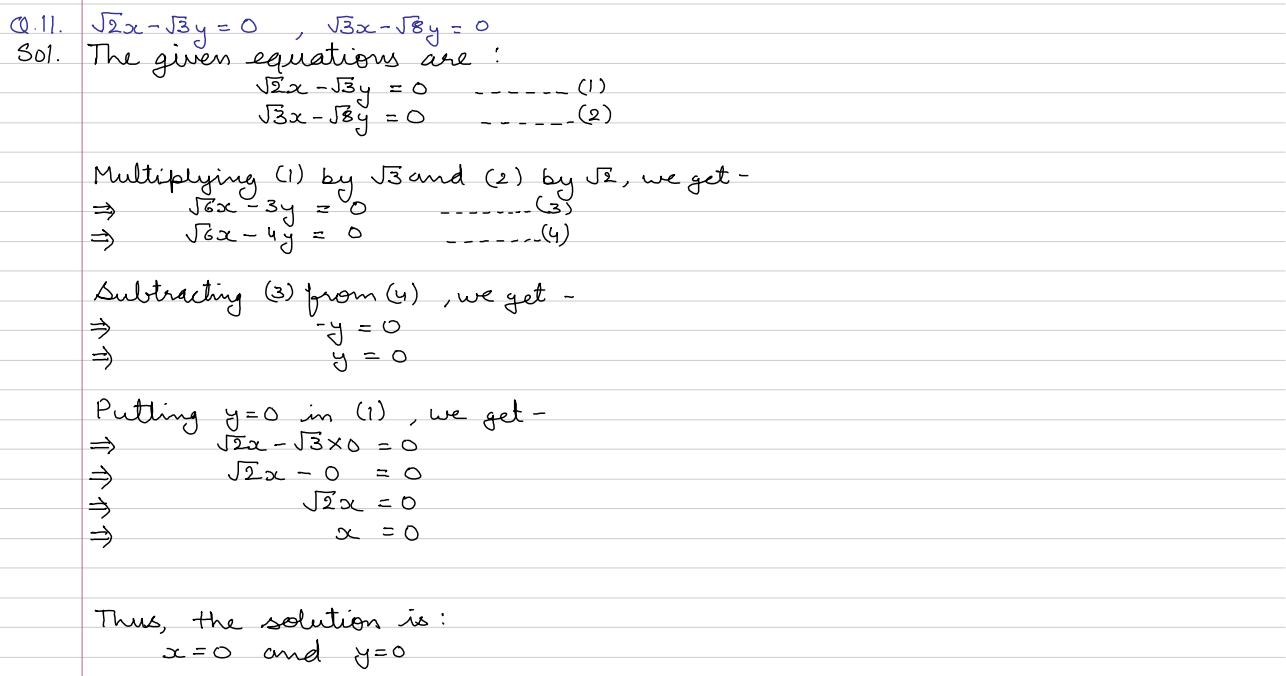 Q.11. √2x - √3y = 0 , √3x - √8y = 0
Sol. The given equations are :
√2x - √3y = 0 ------ (1)
√3x - √8y = 0 ------ (2)
Multiplying (1) by √3 and (2) by √2, we get -
⇒ √6x - 3y = 0 -------- (3)
⇒ √6x - 4y = 0 -------- (4)
Subtracting (3) from (4) , we get -
⇒ -y = 0
⇒ y = 0
Putting y=0 in (1) , we get -
⇒ √2x - √3×0 = 0
⇒ √2x - 0 = 0
⇒ √2x = 0
⇒ x = 0
Thus, the solution is :
x = 0 and y=0